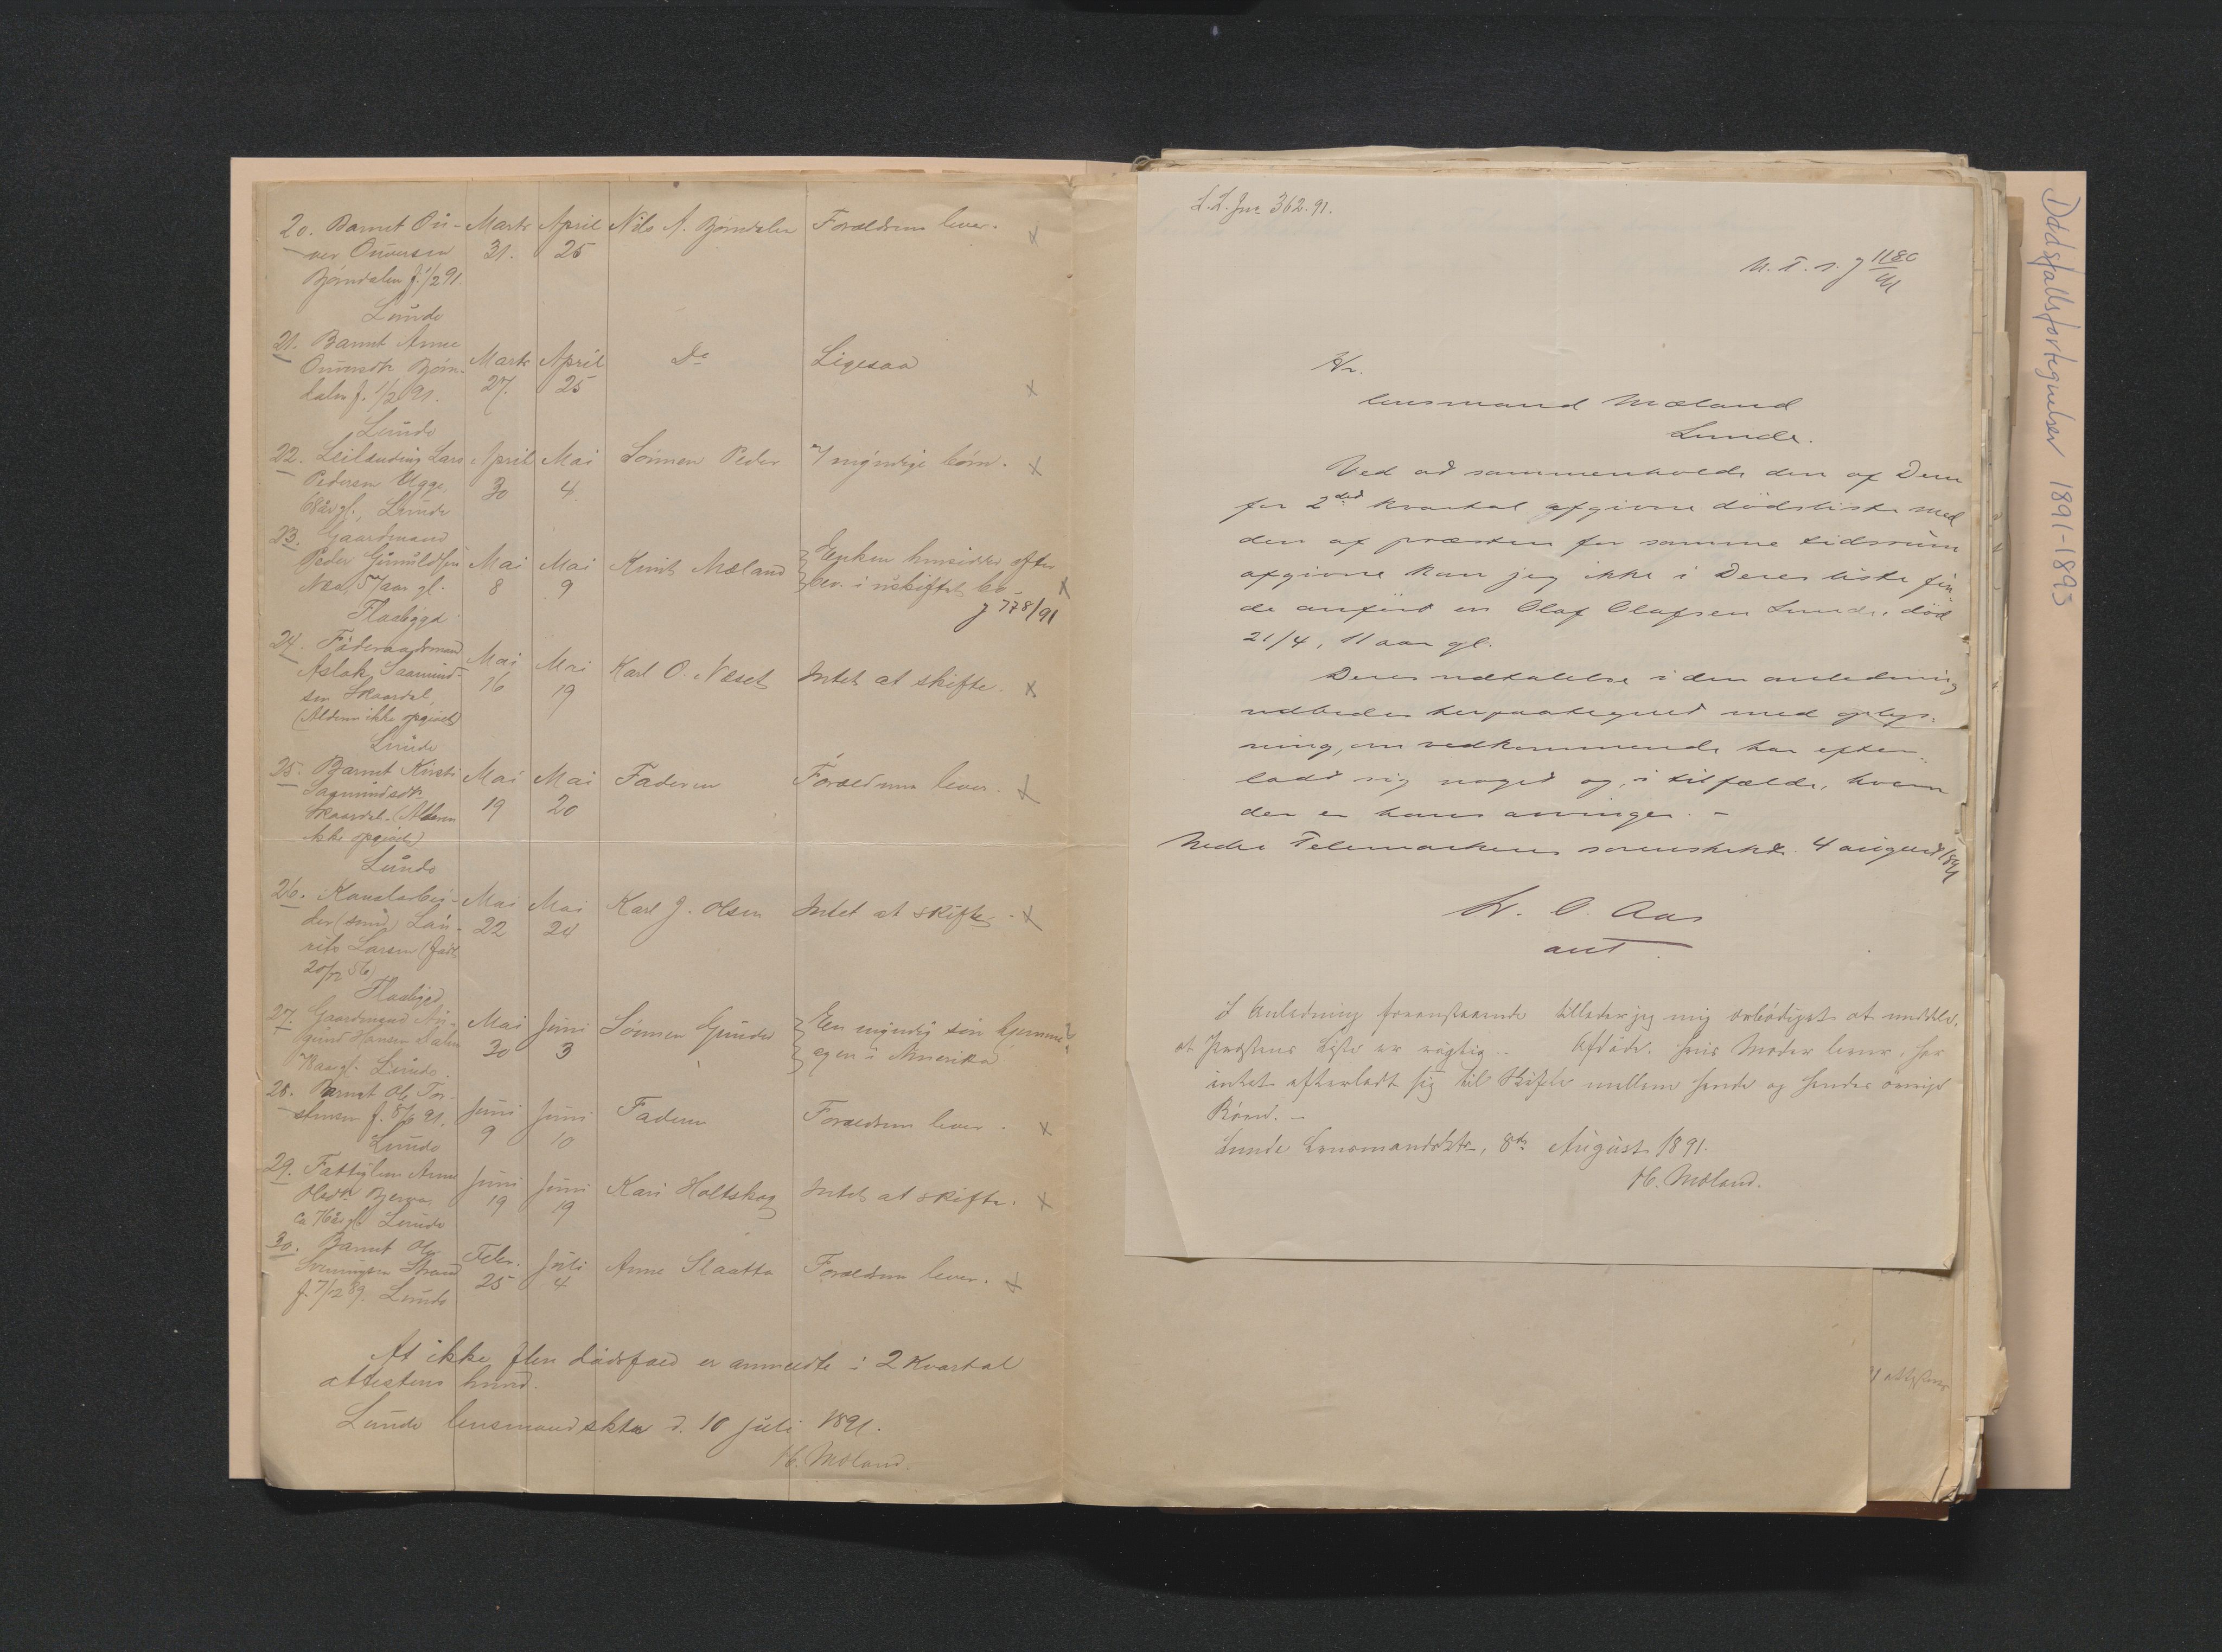 20. Barnet Ou- Marts April Nils A. Bjørndalen Forældrene lever. x
ver Ouversen 31. 25
Bjørndalen f. 1/2 91.
Lunde
21. Barnet Anne Marts April Do Ligesaa x
Ouversdtr Bjørn- 27. 25
dalen f. 1/2 91.
Lunde
22. Leilænding Lars April Mai Sønnen Peder 7 myndige børn. x
Pedersen Ugge, 30 4.
68 aar gl., Lunde
23. Gaardmand
Peder Mai Mai Knut Mæland Enken hensidder efter
57 aar gl. 8 9 bev. i uskiftet bo x
Flaabygd J 778/91
24. Føderaadsmand
Aslak Saamund- Mai Mai Karl O. Næset Intet at skifte. x
sen Skaardal, 16 19
(Alderen ikke opgivet)
Lunde
25. Barnet Kirsti Mai Mai Faderen Forældrene lever. x
Saamundsdtr 19 20
Skaardal. (Alderen
ikke opgivet)
Lunde
26. Kanalarbei- Mai Mai Karl J. Olsen Intet at skifte. x
der Lau- 22 24
rits Larsen (født
20/12 56)
Flaabygd
27. Gaardmand Mai Juni Sønnen Gunder En myndig søn hjemme
Hansen 30 3 og en i Amerika
Lunde.
28. Barnet Ole Tor- Juni Juni Faderen Forældrene lever. x
stensen f. 8/6 91. 9 10
Lunde
29. Fattiglem Anne Juni Juni Kari Holtskog Intet at skifte. x
Olsdtr 19 19
ca 76 aar gl. Lunde
30. Barnet Ole Febr. Juli Anne Slaatta Forældrene lever. x
Svenningsen Strand 25 4
f. 7/12 89. Lunde
At ikke flere dødsfald er anmeldte i 2 Kvartal
attesteres herved.
Lunde lensmandsktr d. 10 juli 1891.
H. Mæland.
L.L. Jnr 362.91.
N. T. s. J 1180/91
Hr.
lensmand Mæland
Lunde.
Ved at sammenholde den af Dem
for 2det kvartal afgivne dødsliste med
den af præsten for samme tidsrum
afgivne kan jeg ikke i Deres liste fin-
de anført en Olaf Olafsen Lunde, død
21/4, 11 aar gl.
Deres udtalelse i den anledning
udbedes herpaategnet med oplys-
ning, om vedkommende har efter-
ladt sig noget og, i tilfælde, hvem
der er hans arvinger. –
Nedre Telemarkens sorenskriveri 4 august 1891
L. O. Aas
aut.
I Anledning foranstaaende tillader jeg mig ærbødigst at meddele,
at Præstens Liste er rigtig. Afdøde, hvis Moder lever, har
intet efterladt sig til Skifte mellem hende og hendes øvrige
Børn. –
Lunde Lensmandsktr, 8de August 1891.
H. Mæland.
Dødsfallsfortegnelser 1891-1893